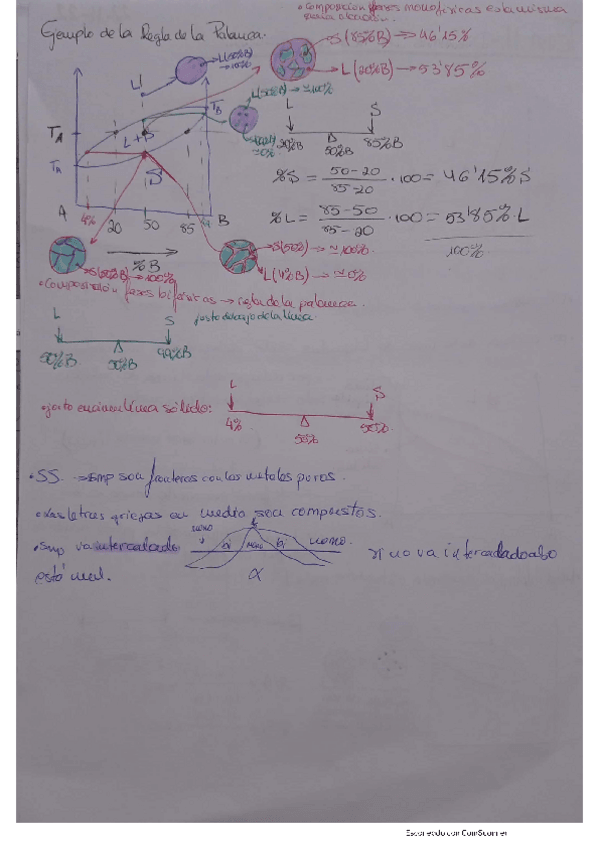 • composición fases monofásicas es la misma
Ejemplo de la Regla de la Palanca.
S(85%B) → 46'15%
L(20%B) → 53'85%
L(50%B)
→ 100%
L
L(50%B) → ≃100%
≃0%
T_B
T_A
L+S
S
T_A
A
4%
20
50
85
B
%B
L
S
20%B
50%B
85%B
%S = 50-20 / 85-20 · 100 = 46'15% S
%L = 85-50 / 85-20 · 100 = 53'85% L
100%
S(50%B) → 100%
S(50%) → ≃100%.
L(4%B) → ≃0%
• Composición fases bifásicas → regla de la palanca.
justo debajo de la línea
L
S
50%B
50%B
99%B
• justo encima línea sólido:
L
S
4%
50%
50%
• SS. → smp son fronteras con los metales puros.
• Las letras griegas en medio son compuestos.
• Smp va intercalado
mono
bi
mono
bi
mono.
si no va intercalado
está mal.
α
Escaneado con CamScanner